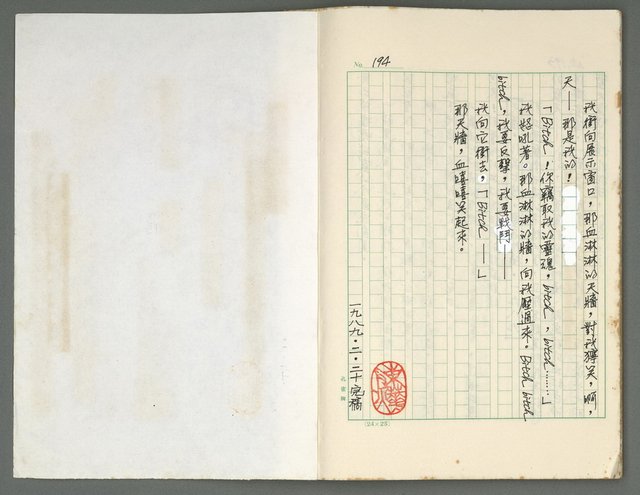 No. 194
我衝向展示窗口，那血淋淋的天牆，對我獰笑，啊，
天——那是我的！
「Bitch！你竊取我的靈魂，bitch，bitch……」
我怒吼著。那血淋淋的牆，向我壓過來。Bitch bitch
bitch，我要反擊，我要戰鬥——
我向它衝去，「Bitch——」
那天牆，血嘻嘻笑起來。
一九八九·二·二十完稿
(24×25)